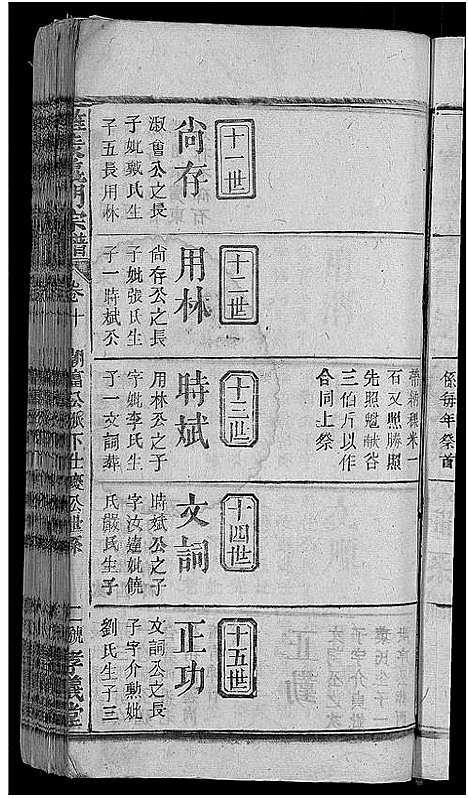 係每年祭首
石又照勝照
三伯斤以作
合同上祭
十一世
尙存
淑會公之長
子妣戴氏生
子五長用林
十二世
用林
尙存公之長
子妣張氏生
子一時斌公
十三世
時斌
用林公之子
字妣李氏生
子一文詞葬
十四世
文詞
時斌公之子
字汝達妣饒
氏嚴氏生子
十五世
正功
文詞公之長
子字介勳妣
劉氏生子三
宗譜
卷十
二號
孝義堂